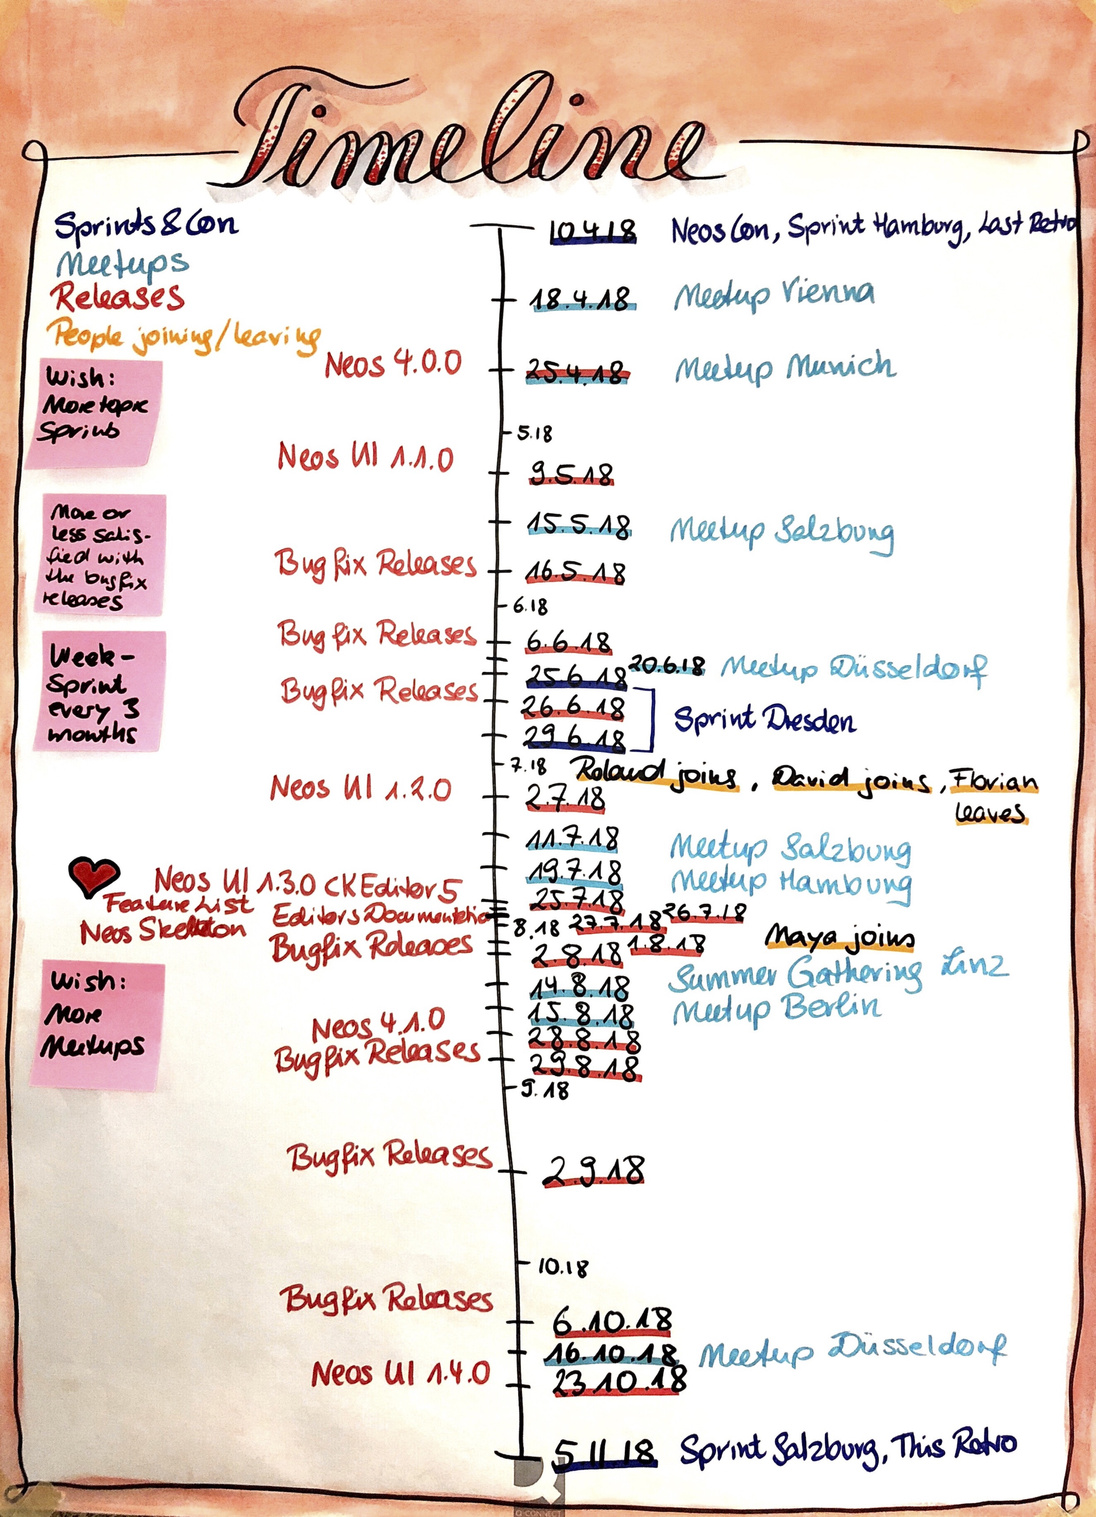 Timeline
Sprints & Con
Meetups
Releases
People joining/leaving
Wish:
More topic
Sprints
More or
less satis-
fied with
the bugfix
releases
Week-
Sprint
every 3
months
Wish:
More
Meetups
10.4.18 Neos Con, Sprint Hamburg, Last Retro
18.4.18 Meetup Vienna
Neos 4.0.0 25.4.18 Meetup Munich
5.18
Neos UI 1.1.0 9.5.18
15.5.18 Meetup Salzburg
Bugfix Releases 16.5.18
6.18
Bugfix Releases 6.6.18
20.6.18 Meetup Düsseldorf
25.6.18
Bugfix Releases 26.6.18 Sprint Dresden
29.6.18
7.18 Roland joins, David joins, Florian
leaves
Neos UI 1.2.0 2.7.18
11.7.18 Meetup Salzburg
19.7.18 Meetup Hamburg
Neos UI 1.3.0 CK Editor 5 25.7.18
Feature List Editors Documentation 27.7.18 26.7.18
Neos Skeleton 8.18 1.8.18 Maya joins
Bugfix Releases 2.8.18
14.8.18 Summer Gathering Linz
15.8.18 Meetup Berlin
Neos 4.1.0 28.8.18
Bugfix Releases 29.8.18
9.18
Bugfix Releases 2.9.18
10.18
Bugfix Releases 6.10.18
16.10.18 Meetup Düsseldorf
Neos UI 1.4.0 23.10.18
5.11.18 Sprint Salzburg, This Retro